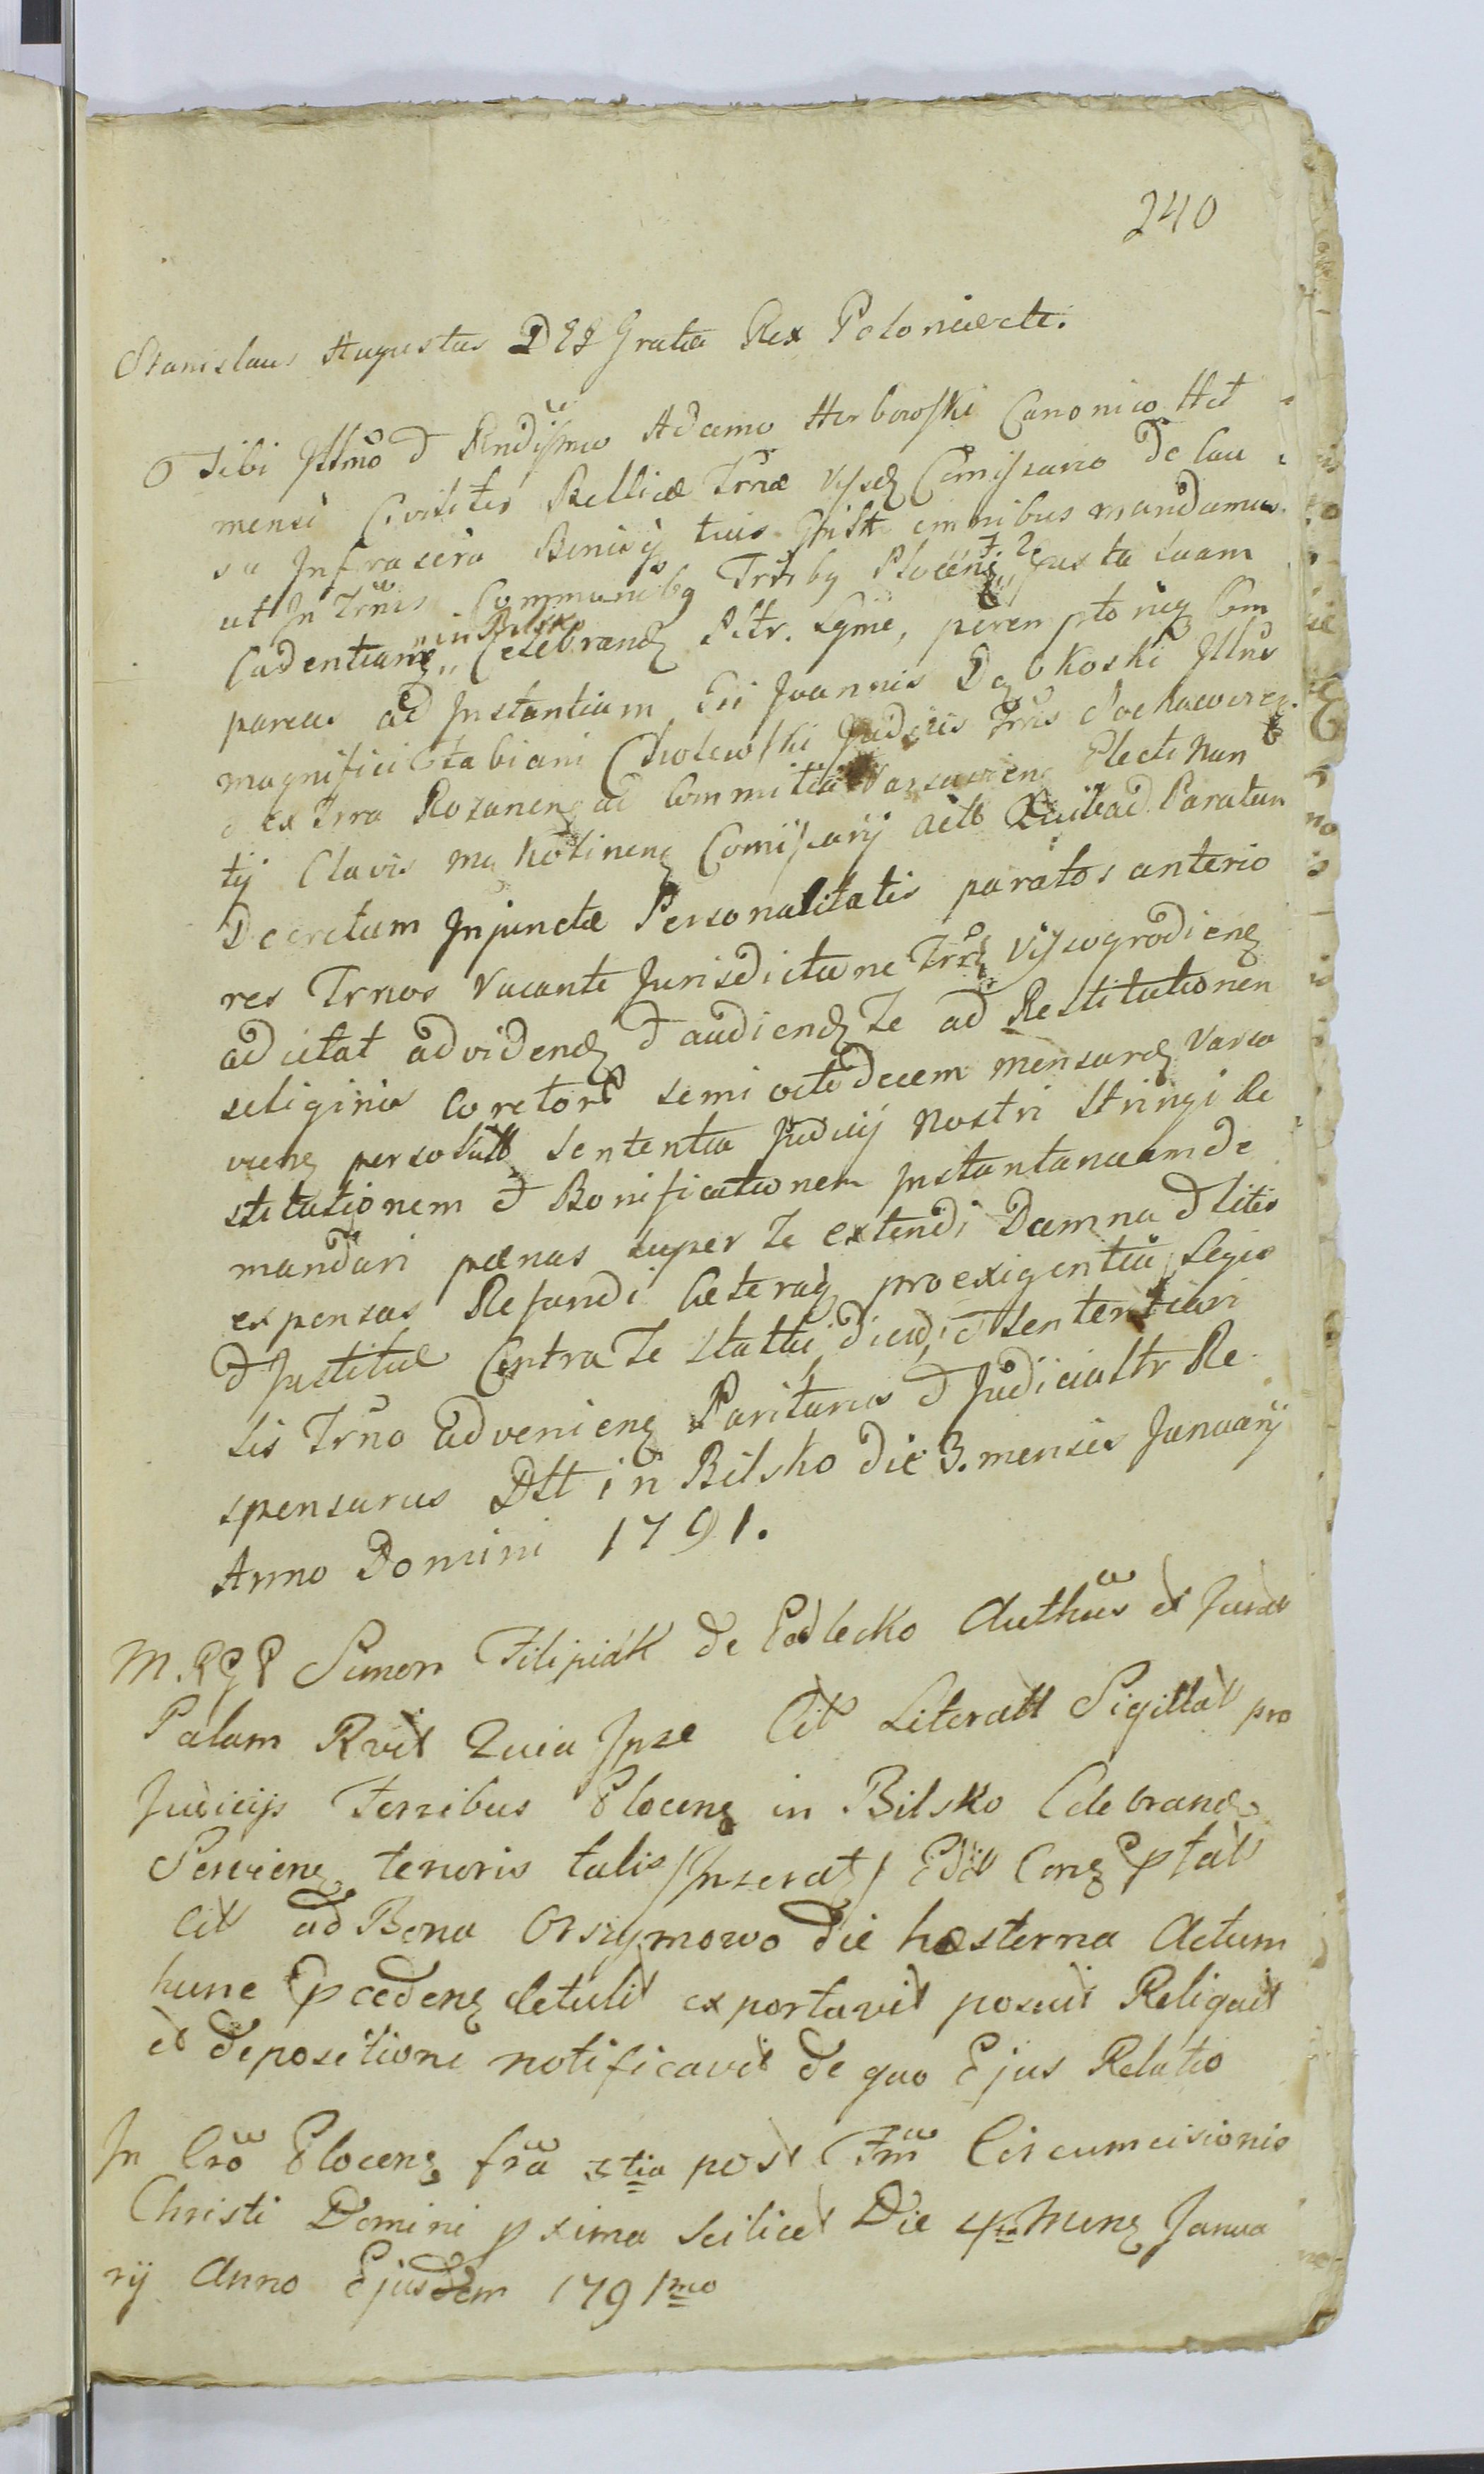 240
Stanislaus Augustus DEI Gratia Rex Poloniæ etc.
Tibi Illmo et Rndissmo Adamo Herbowski Canonico
mensi Civiliter Bellicæ Trræ Commissario De Cau
sa Infrascra Bonisq tuis omnibus mandamus
ut In Trmis Communibq Trrlibq Plocens Juxta suam
Cadentiam „in Bilsko„ Celebrand Pltr. Lgme, peremptorieq Com
pareas ad Instantiam Joannis Dąbkoski Illus
magnifici Fabiani Cholewski Judicis Trris Sochacovien
ex Trra Rozanen ad Commitia Varsavien Electi Nun
tij Clavis Commissarij ad Paratum
Decretum Injunctæ Personalitatis paratos anterio
res Trnos Vacante Jurisdictione Trri Vyssogrodien
adcitat ad videnq et audiend Te ad Restitutionen
seliginis Coretor semi octodecem mensuræ Varsa
vien persolut Sententia Judicij Nostri Stringi Re
stitutionem et Bonificationem Instantaneam de
mandari pœnas super Te extendi Damna et litis
expensas Refundi Cæteraq pro exigentia Legis
et Justitiæ Contra Te statui dicadi et Sententiari
sis Trno advenienq Pariturus et Judicialtr Re
spensurus Dtt in Bilsko die 3. mensis Januarij
Anno Domini 1791.
M. Simon Filipiak de Authus et Jurat
Palam Rvit Quia Ipse Cit Literatt Sigillat pro
Judicijs Terribus Plocenq in Bilsko Celebrand
Servienq tenoris talis /Inserat/ Edit Conq ptatt
Cit ad Bona Orszymowo die hæsterna Actum
hunc pcedenq detulit exportavit posuit Reliquit
et depositione notificavit de quo Ejus Relatio
In Cro Plocenq fra 3tia post Ftm Circumcisionis
Christi Domini pxima scilicet Die 4ta Mens Janua
rij Anno Ejusdem 1791mo